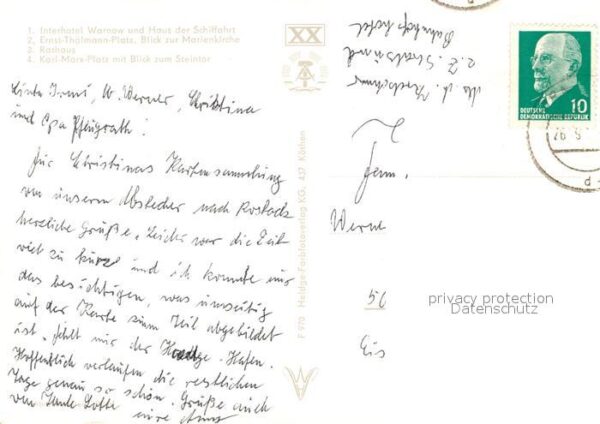 1. Interhotel Warnow und Haus der Schiffahrt
2. Ernst-Thälmann-Platz, Blick zur Marienkirche
3. Rathaus
4. Karl-Marx-Platz mit Blick zum Steintor
XX
Liebe Irmi, W. Werner, Christina
und Opa
Für Christinas Kartensammlung
von unserem Abstecher nach Rostock
herzliche Grüße. Leider war die Zeit
viel zu kurz und ich konnte nur
das besichtigen, was umseitig
auf der Karte zum Teil abgebildet
ist, fehlt nur der Hafen.
Hoffentlich verlaufen die restlichen
Tage genau so schön. Grüße auch
von Tante Lotte eure
F 970 Heldge-Farbfotoverlag KG, 437 Köthen
z. Z. Stralsund
Bahnhofshotel
Fam.
Werne
56
Eis
privacy protection
Datenschutz
10
DEUTSCHE
DEMOKRATISCHE REPUBLIK